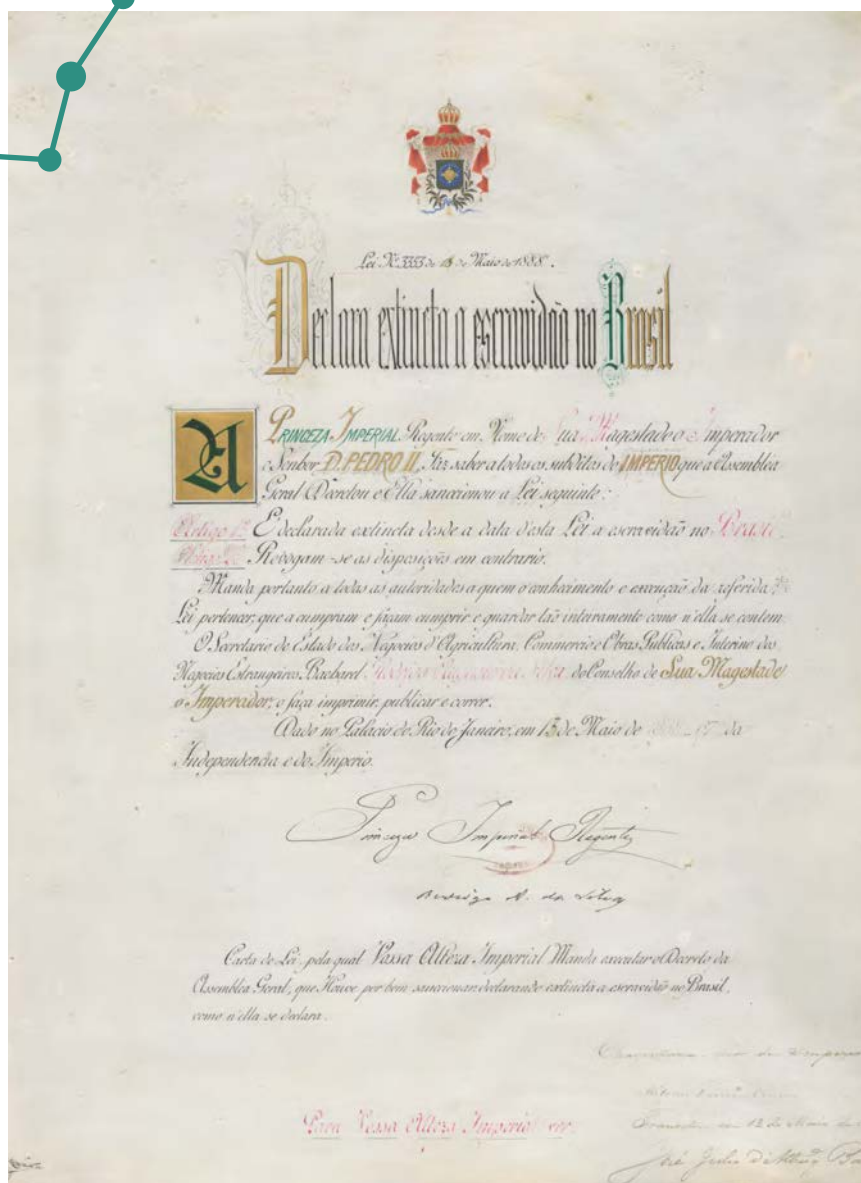 Lei Nº 3353 de 13 de Maio de 1888.
Declara extincta a escravidão no Brasil
A PRINCEZA IMPERIAL Regente em Nome de Sua Magestade o Imperador
o Senhor D. PEDRO II, Faz saber a todos os subditos do IMPERIO que a Assemblea
Geral Decretou e Ella sanccionou a Lei seguinte:
Artigo 1º É declarada extincta desde a data d'esta Lei a escravidão no Brasil.
Artigo 2º Revogam-se as disposições em contrario.
Manda portanto a todas as autoridades a quem o conhecimento e execução da referida
Lei pertencer, que a cumpram e façam cumprir e guardar tão inteiramente como n'ella se contem.
O Secretario de Estado dos Negocios d'Agricultura, Commercio e Obras Publicas e Interino dos
Negocios Estrangeiros, Bacharel do Conselho de Sua Magestade
o Imperador, o faça imprimir, publicar e correr.
Dado no Palacio do Rio de Janeiro, em 13 de Maio de da
Independencia e do Imperio.
Princeza Imperial Regente
Rodrigo A. da Silva
Carta de Lei, pela qual Vossa Alteza Imperial Manda executar o Decreto da
Assemblea Geral, que Houve por bem sanccionar, declarando extincta a escravidão no Brasil,
como n'ella se declara.
Para Vossa Alteza Imperial ver.
13 de Maio de
José Julio